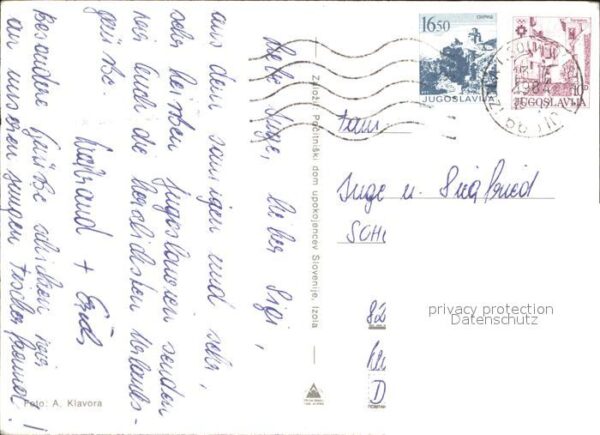 Liebe Inge, lieber Sigi,
aus dem sonnigen und sehr,
sehr heißen Jugoslawien senden
wir Euch die herzlichsten Urlaubs-
grüße.
Waltraud + Erich
Besondere Grüße schicken wir
an unseren jungen Tischfreund!
Foto: A. Klavora
Založil: Počitniški dom upokojencev Slovenije, Izola
16.50
JUGOSLAVIJA
10
JUGOSLAVIJA
1984
Fam.
Inge u. Siegfried
SCH
82
D
privacy protection
Datenschutz